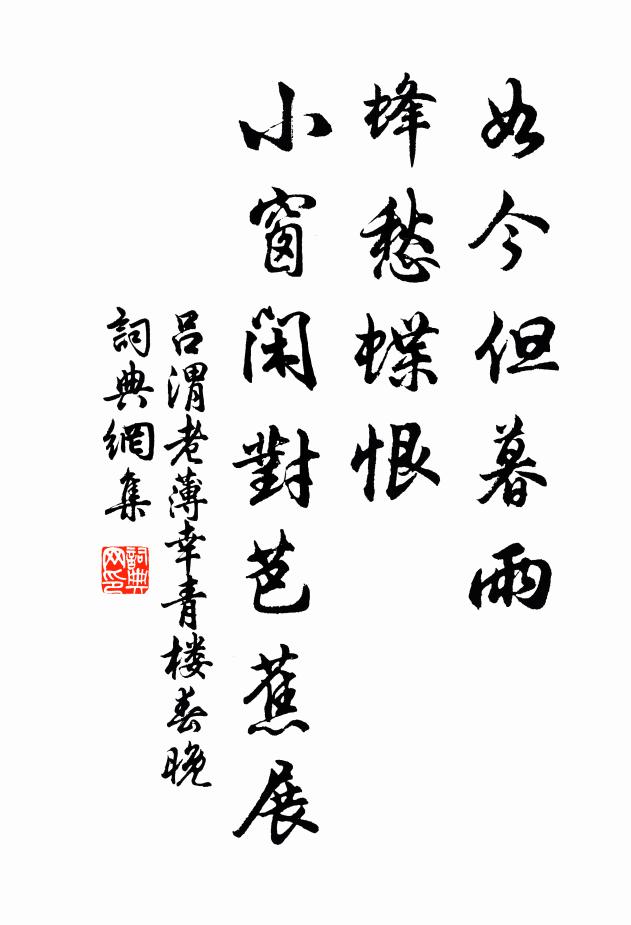 如今但暮雨
蜂愁蝶恨
小窗閑對芭蕉展
呂渭老薄幸青樓春晚
詞典網集
詞典网印